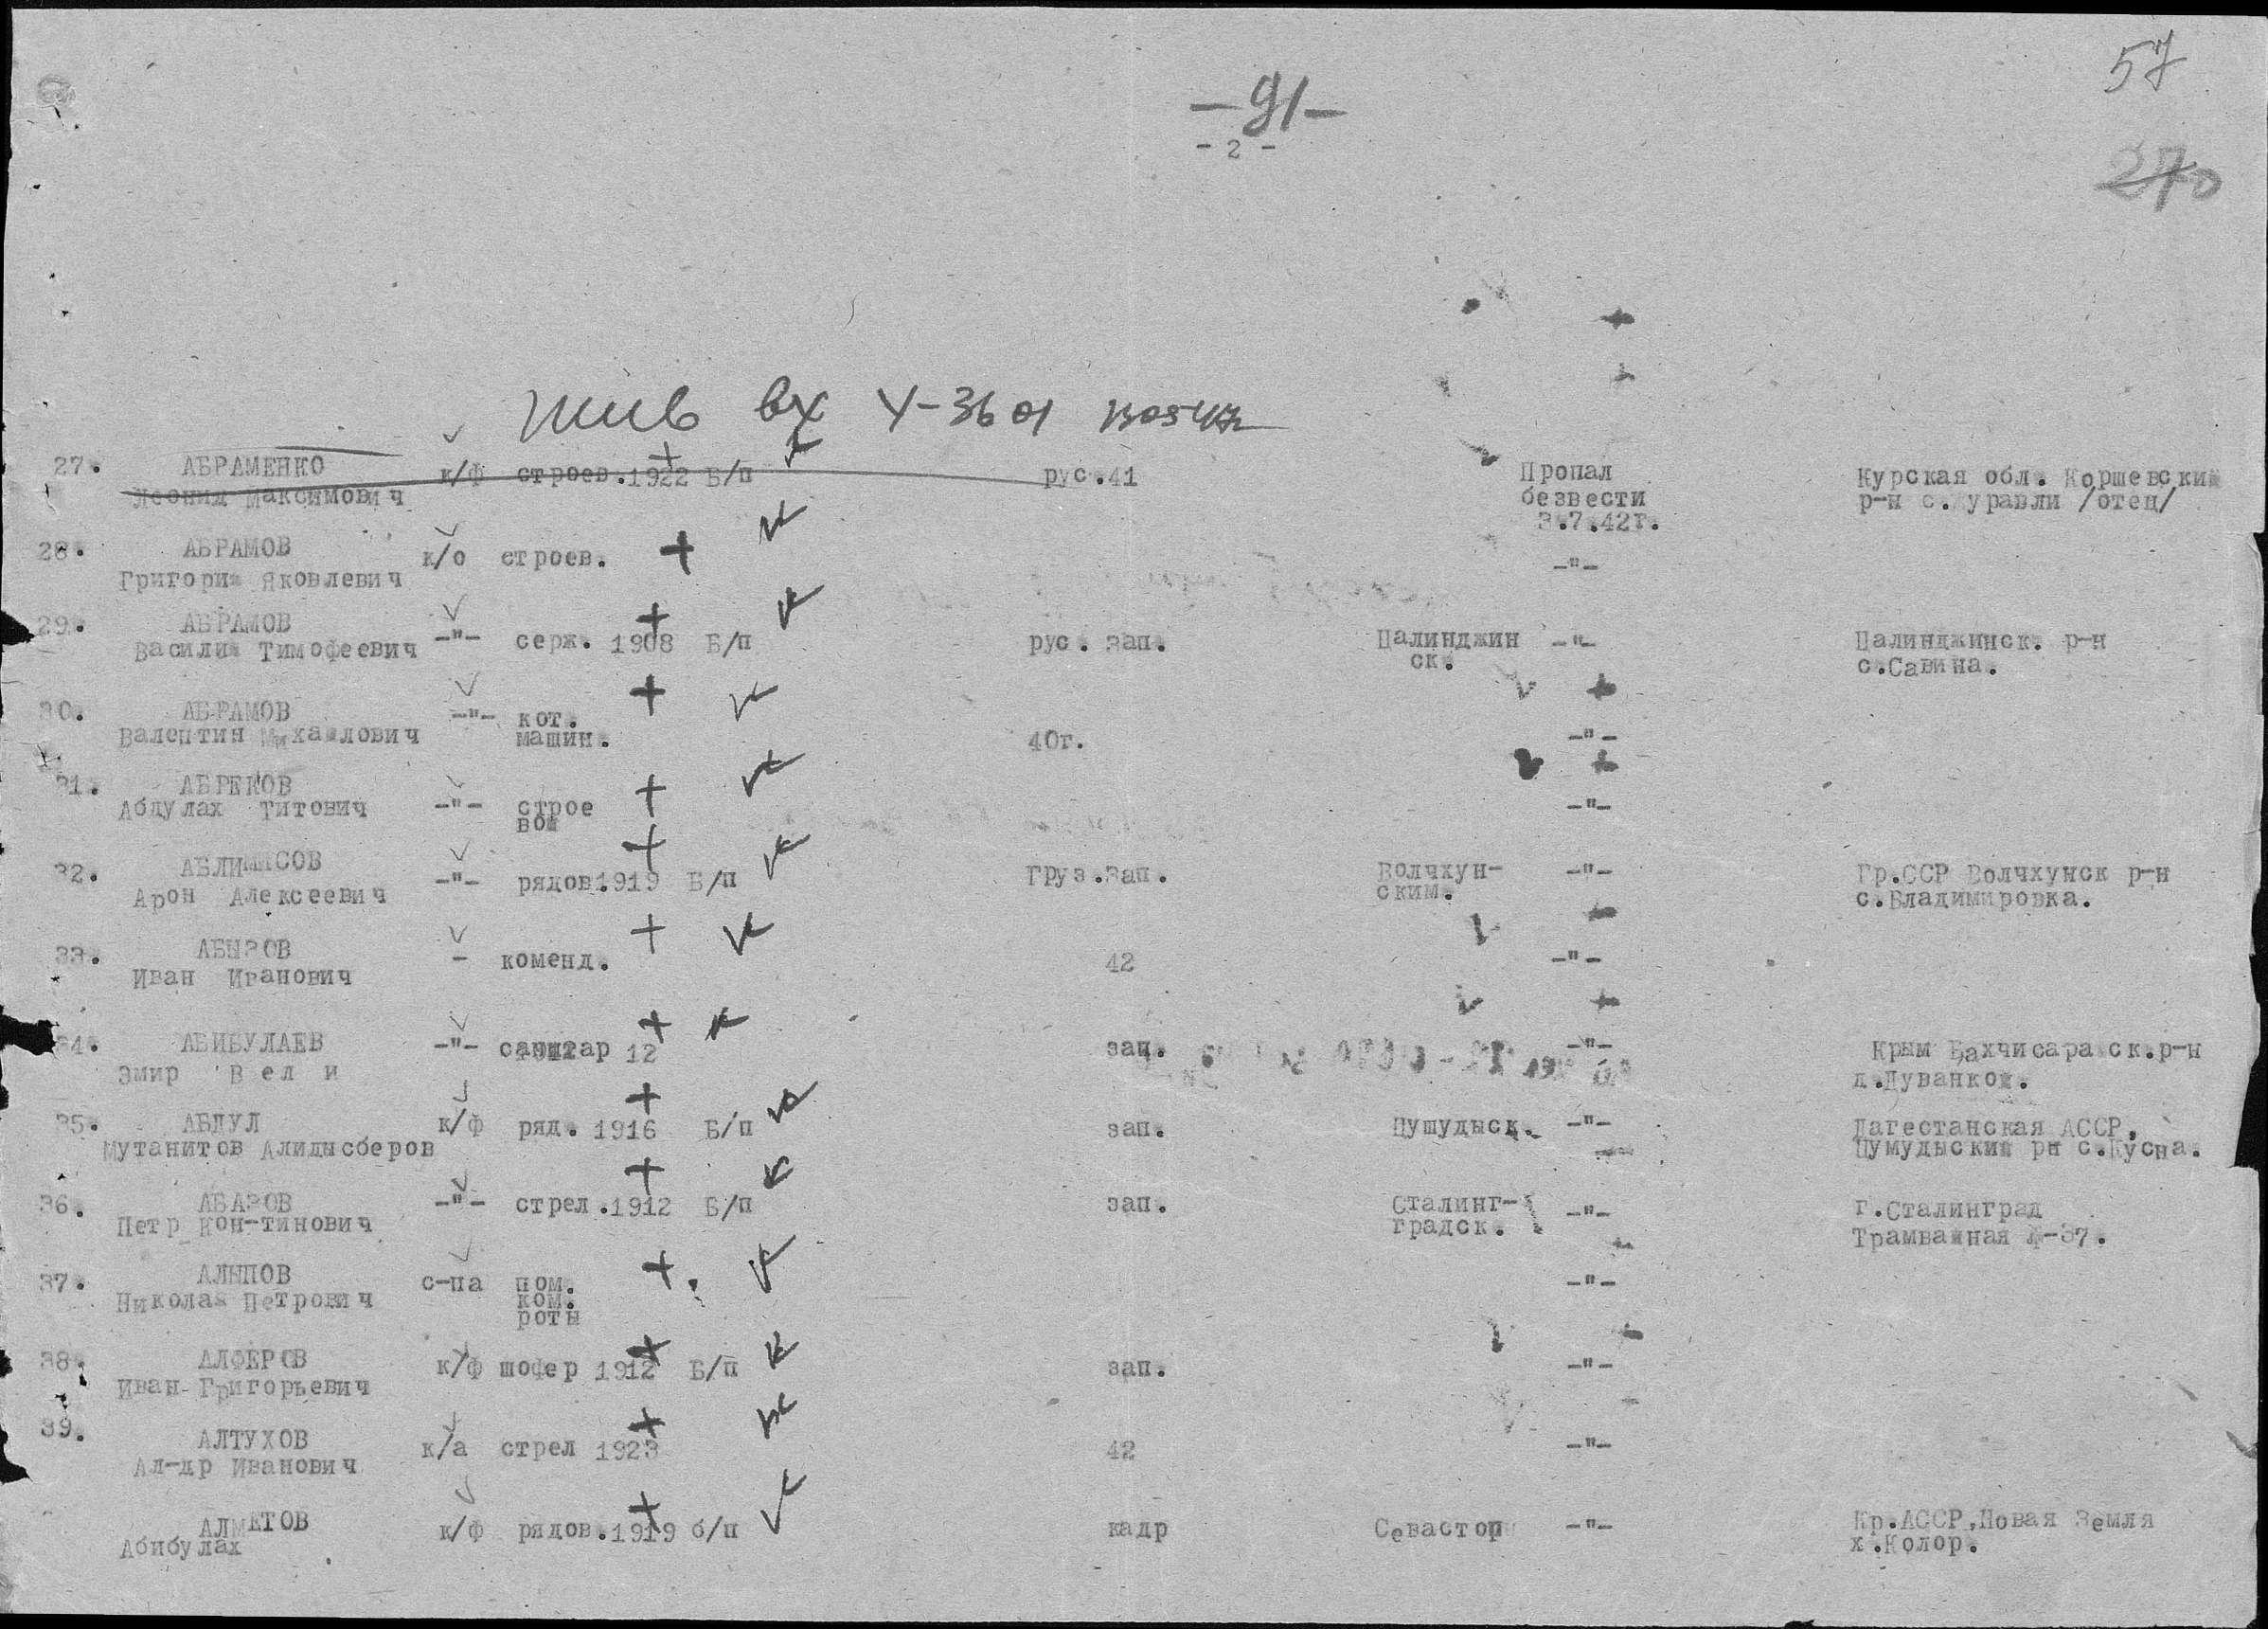 57
-91-
- 2 -
270
жив вх У-3601
27. АБРАМЕНКО к/ф строев.1922 Б/п рус.41 Пропал Курская обл. Коршевский
Леонид Максимович безвести р-н с.Журавли /отец/
3.7.42г.
28. АБРАМОВ к/о строев. -"-
Григорий Яковлевич
29. АБРАМОВ -"- серж. 1908 Б/п рус. зап. Палинджин -"- Палинджинск. р-н
Василий Тимофеевич ск. с.Савина.
30. АБРАМОВ -"- кот. -"-
Валентин Михайлович машин. 40г.
31. АБРЕКОВ -"- строе -"-
Абдулах Титович вой
32. АБЛИМИСОВ -"- рядов.1919 Б/п Груз.зап. Волчхун- -"- Гр.ССР Волчхунск р-н
Арон Алексеевич ским. с.Владимировка.
33. АБЫЗОВ - коменд. 42 -"-
Иван Иванович
34. АБИБУЛАЕВ -"- санитар 12 зап. -"- Крым Бахчисарайск.р-н
Эмир Вели д.Дуванкой.
35. АБДУЛ к/ф ряд. 1916 Б/п зап. Цушудыск. -"- Дагестанская АССР,
Мутанитов Алидысберов Цумудыский рн с.Кусна.
36. АБАЗОВ -"- стрел.1912 Б/п зап. Сталинг- -"- г.Сталинград
Петр Кон-тинович градск. Трамвайная Д-37.
37. АЛЫПОВ с-па пом. -"-
Николай Петрович ком.
роты
38. АЛФЕРОВ к/ф шофер 1912 Б/п зап. -"-
Иван Григорьевич
39. АЛТУХОВ к/а стрел 1923 42 -"-
Ал-др Иванович
АЛМЕТОВ к/ф рядов.1919 б/п кадр Севастоп -"- Кр.АССР,Новая Земля
Абибулах х.Колор.